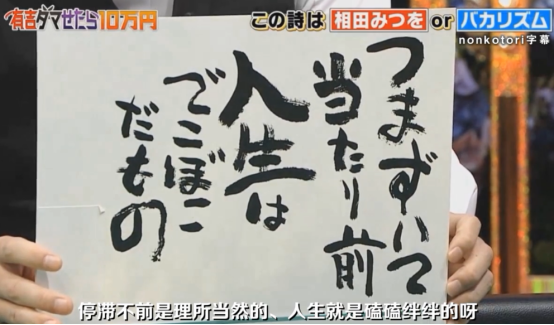 有吉ダマせたら10万円
この詩は 相田みつを or バカリズム
nonkotori字幕
つまずいて
当たり前
人生は
でこぼこ
だもの
停滞不前是理所当然的、人生就是磕磕绊绊的呀